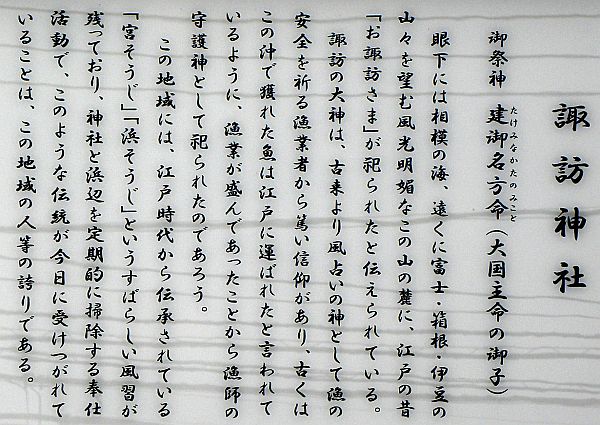 諏訪神社
御祭神　建御名方命（大国主命の御子）
たけみなかたのみこと
眼下には相模の海、遠くに富士・箱根・伊豆の
山々を望む風光明媚なこの山の麓に、江戸の昔
「お諏訪さま」が祀られたと伝えられている。
諏訪の大神は、古来より風占いの神として漁の
安全を祈る漁業者から篤い信仰があり、古くは
この沖で獲れた魚は江戸に運ばれたと言われて
いるように、漁業が盛んであったことから漁師の
守護神として祀られたのであろう。
この地域には、江戸時代から伝承されている
「宮そうじ」「浜そうじ」というすばらしい風習が
残っており、神社と浜辺を定期的に掃除する奉仕
活動で、このような伝統が今日に受けつがれて
いることは、この地域の人等の誇りである。